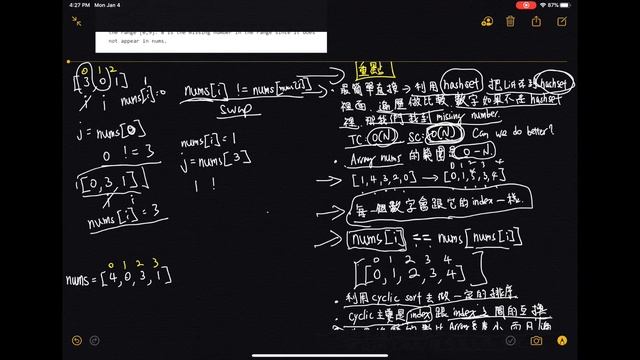 4:27 PM Mon Jan 4
87%
the range [0,9]. 8 is the missing number in the range since it does
not appear in nums.
0 1 2
[3 0 1]
i i
nums[i]=0
j = nums[0]
0 != 3
[0,3,1]
nums[i]=3
0 1 2 3
nums = [4,0,3,1]
nums[i] != nums[nums[i]]
swap
nums[i]=1
j = nums[3]
1 !
重點
最簡單直接 → 利用 hashset 把 List 丟到 hashset
裡面, 遍歷做比較, 數字如果不在 hashset
裡, 我們找到 missing number.
TC: O(N) SC: O(N) Can we do better?
Array nums 的範圍是 0-N
0 1 2 3 4
[1,4,3,2,0] → [0,1,2,3,4]
每一個數字會跟它的 index 一樣.
nums[i] == nums[nums[i]]
0 1 2 3 4
[0,1,2,3,4]
利用 cyclic sort 去做一定的排序
cyclic 主要是 index 跟 index 之間的互換